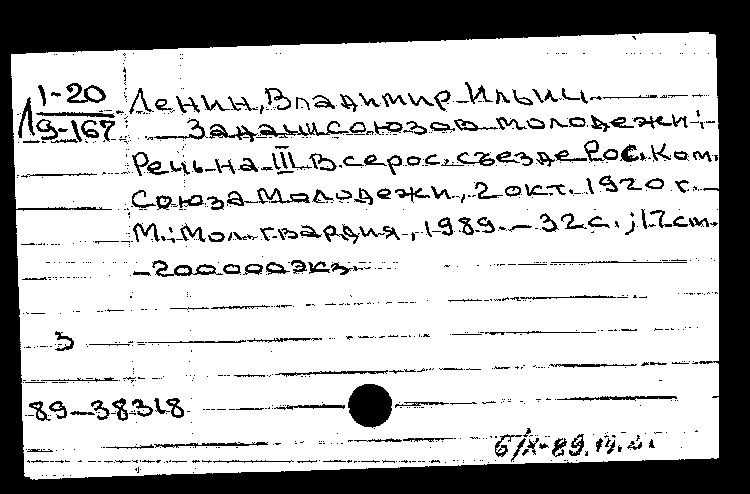 Л 1-20
9-167
Ленин, Владимир Ильич.
Задачи союзов молодежи:
Речь на III Всерос. съезде Рос. Ком.
Союза Молодежи, 2 окт. 1920 г. -
М.: Мол. гвардия, 1989. - 32 с.; 17 см.
- 200000 экз.
3
89-38318
6/X-89.